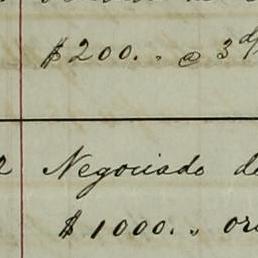 $200. " @ 3 d/
Negociado de
$1000. "